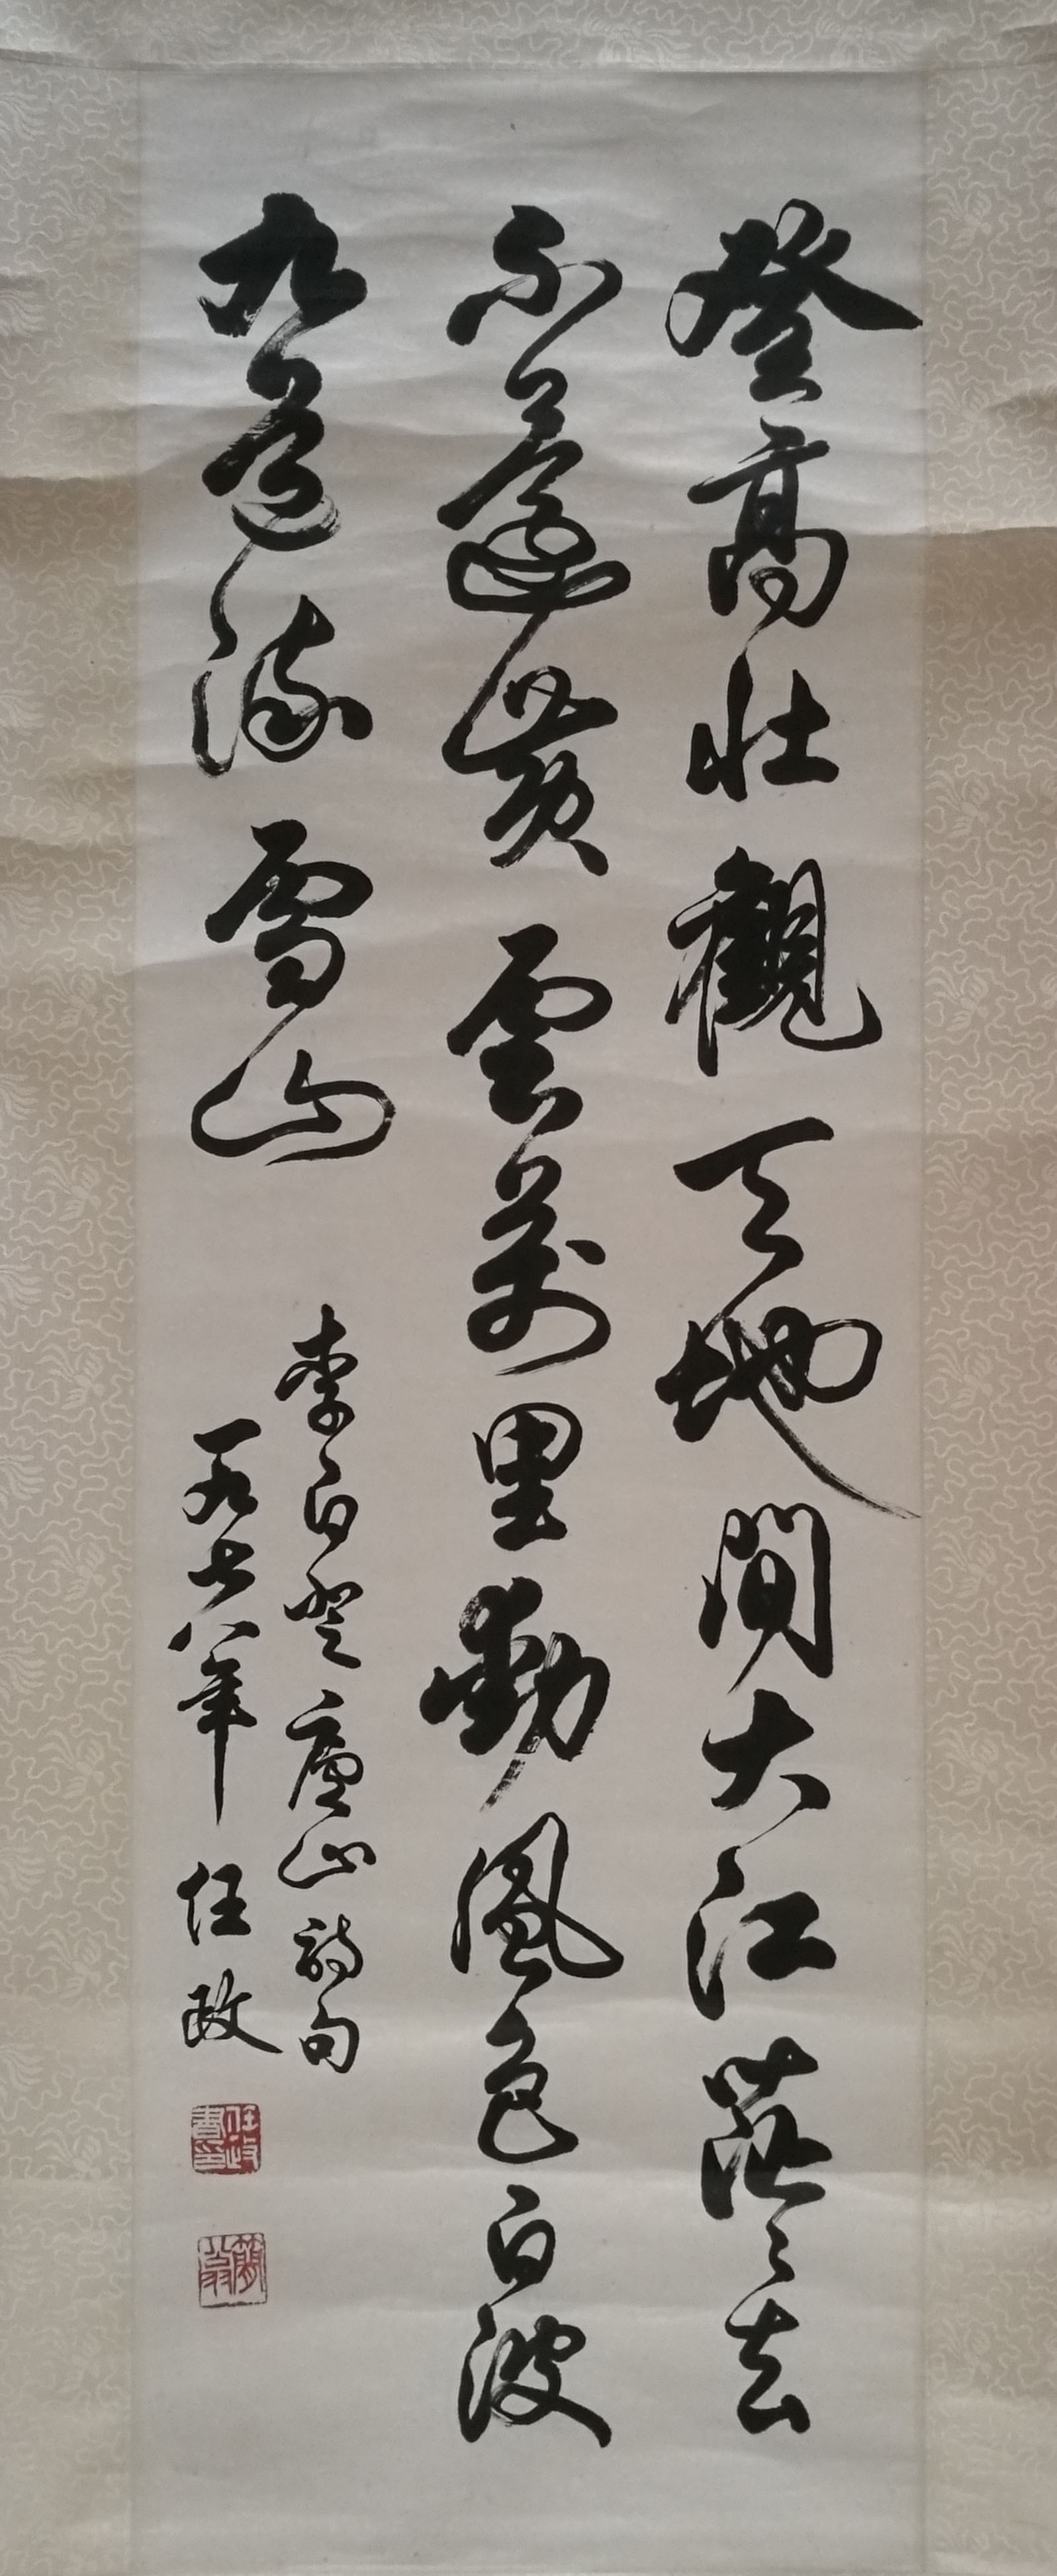 登高壯觀天地間大江茫々去
不還黃雲萬里動風色白波
九道流雪山
李白登廬山詩句
一九七八年 任政
任政書印
蘭翁